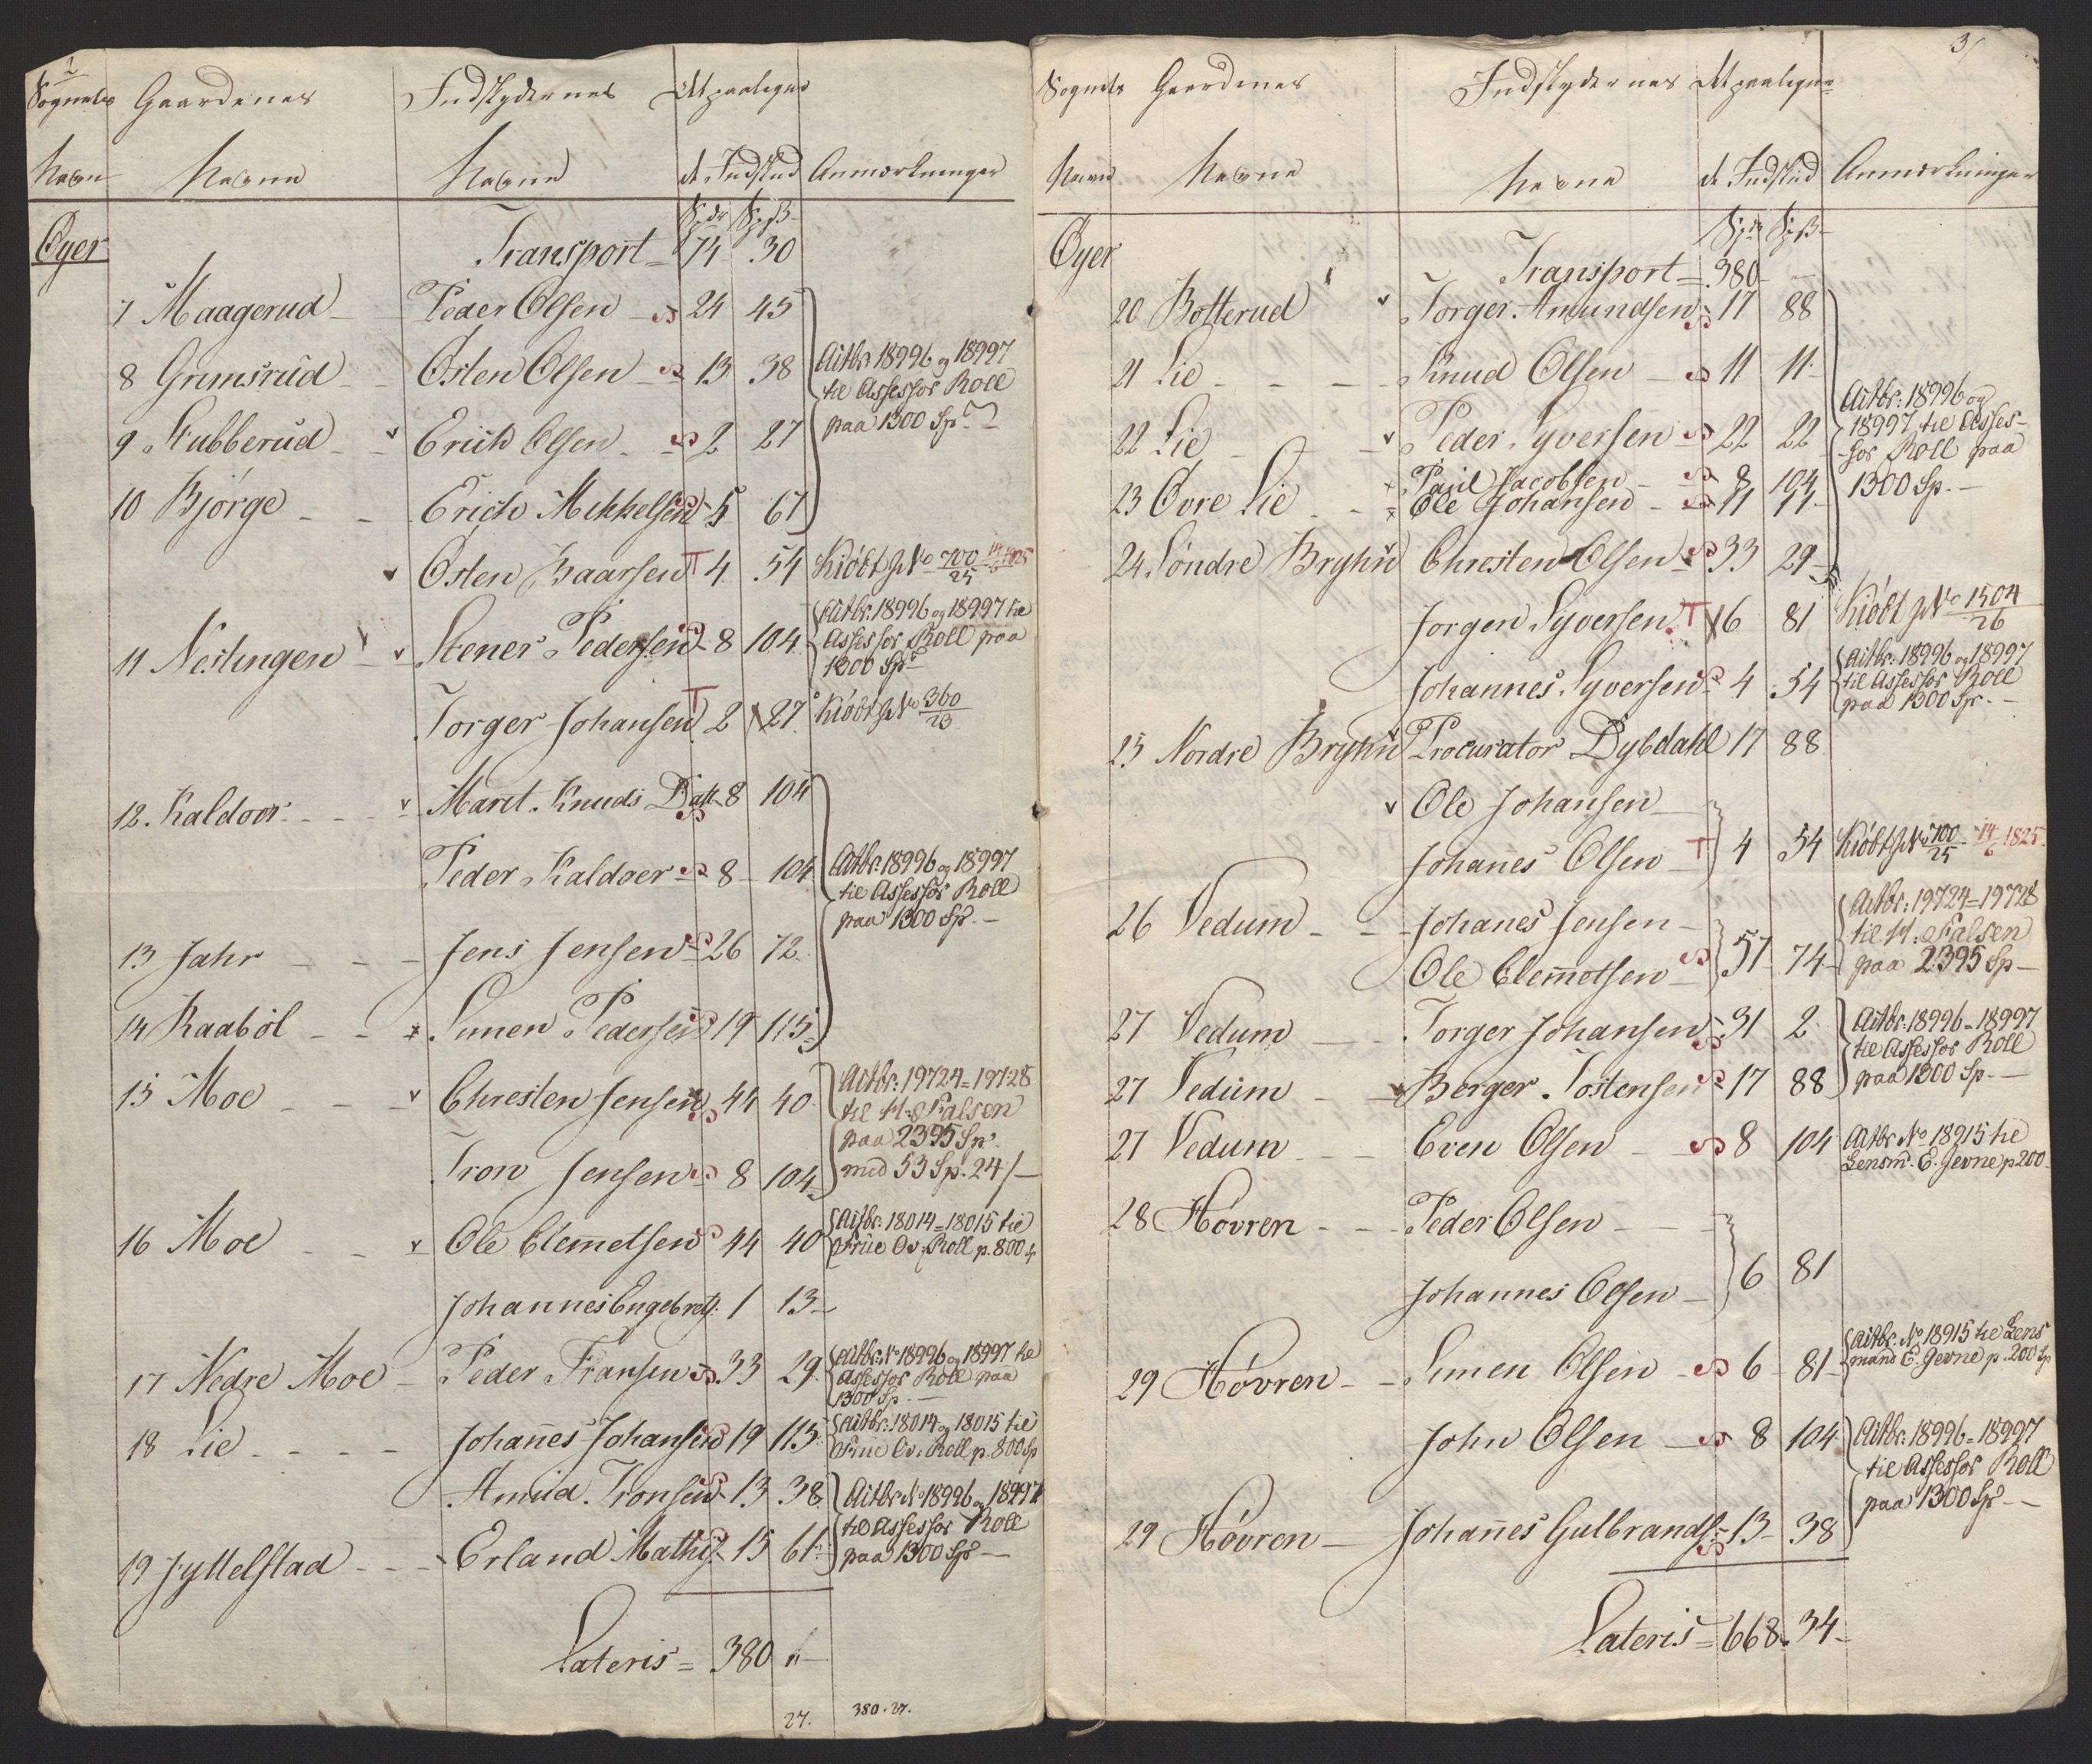 2
Sognets Gaardenes Indskydernes Det paalignede
Navn Navne Navne de Indskud Anmærkninger
Spdr Spß
Øyer Transport = 74 30
7 Maagerud Peder Olsen 24 45
8 Grimsrud Østen Olsen 13 38 Aitbr: 18996 og 18997
til Assessor Roll
paa 1300 Spr
9 Stubberud v Erich Olsen 2 27
10 Bjørge Erich Mikkelsen 5 67
v Østen Baarsen T 4 54 Kiöbt p No 700/25 14/6 1825
11 Neslingen v Stener Pedersen 8 104 Aitbr: 18996 og 18997 til
Assessor Roll paa
1300 Spr
Torger Johansen T 2 27 Kiöbt p No 360/23
12. Kaldoer v Marit Knuds Datt. 8 104
Peder Kaldoer 8 104 Aitbr: 18996 og 18997
til Assessor Roll
paa 1300 Sp. –
13 Jahr Jens Jensen 26 72
14 Raaböl Simen Pedersen 19 115
15 Moe v Christen Jensen 44 40 Aitbr: 19724 = 19728
til H: Falsen
paa 2395 Spr.
med 53 Sp. 24/–
Tron Jensen 8 104
16 Moe v Ole Clemetsen 44 40 Aitbr: 18014 = 18015 til
Frue Ov. Roll p. 800 Sp
Johannes Engebrets: 1 13
17 Nedre Moe Peder Fransen 33 29 Aitbr: No 18996 og 18997 til
Assessor Roll paa
1300 Sp. –
18 Lie Johanes Johansen 19 115 Aitbr: 18014 og 18015 til
Frue Ov: Roll p. 800 Sp
Amund Tronsen 13 38 Aitbr No 18996 og 18997
til Assessor Roll
paa 1300 Spr –
19 Jyttelstad Erland Mathis: 15 61
Lateris = 380 "
27. 380.27.
3/
Sognets Gaardenes Indskydernes Det paalignede
Navn Navne Navne de Indskud Anmærkninger
Spdr Spß
Øyer Transport = 380 –
20 Botterud v Torger Amundsen 17 88
21 Lie Knud Olsen 11 11
22 Lie v Peder Syversen 22 22 Aitbr: 18996 og
18997 til Asses-
sor Roll paa
1300 Sp. –
23 Øvre Lie Paul Jacobsen 8 104
Ole Johansen 11 11
24 Søndre Bryhn Christen Olsen 33 29
Jorgen Syversen T 6 81 Kiöbt p No 1504/26
Johannes Syversen 4 54 Aitbr: 18996 og 18997
til Assessor Roll
paa 1300 Sp. –
25 Nordre Bryhn Procurator Dybdahl 17 88
v Ole Johansen
Johanes Olsen T 4 54 Kiöbt p No 700/25 14/6 1825.
26 Vedum Johanes Jensen Aitbr: 19724 = 19728
til H: Falsen
paa 2395 Sp –
Ole Clemetsen 57 74
27 Vedum Torger Johansen 31 2 Aitbr: 18996 = 18997
til Assessor Roll
paa 1300 Sp. –
27 Vedum Berger Tostensen 17 88
27 Vedum Even Olsen 8 104 Aitbr No 18915 til
Lensm. E. Jevne p 200
28 Høvren Peder Olsen
Johannes Olsen 6 81
29 Høvren Simen Olsen 6 81 Aitbr. No 18915 til Lens
mand E. Jevne p. 200 Sp
John Olsen 8 104 Aitbr: 18996 = 18997
til Assessor Roll
paa 1300 Spr –
29 Høvren Johanes Gulbrands: 13 38
Lateris = 668. 34